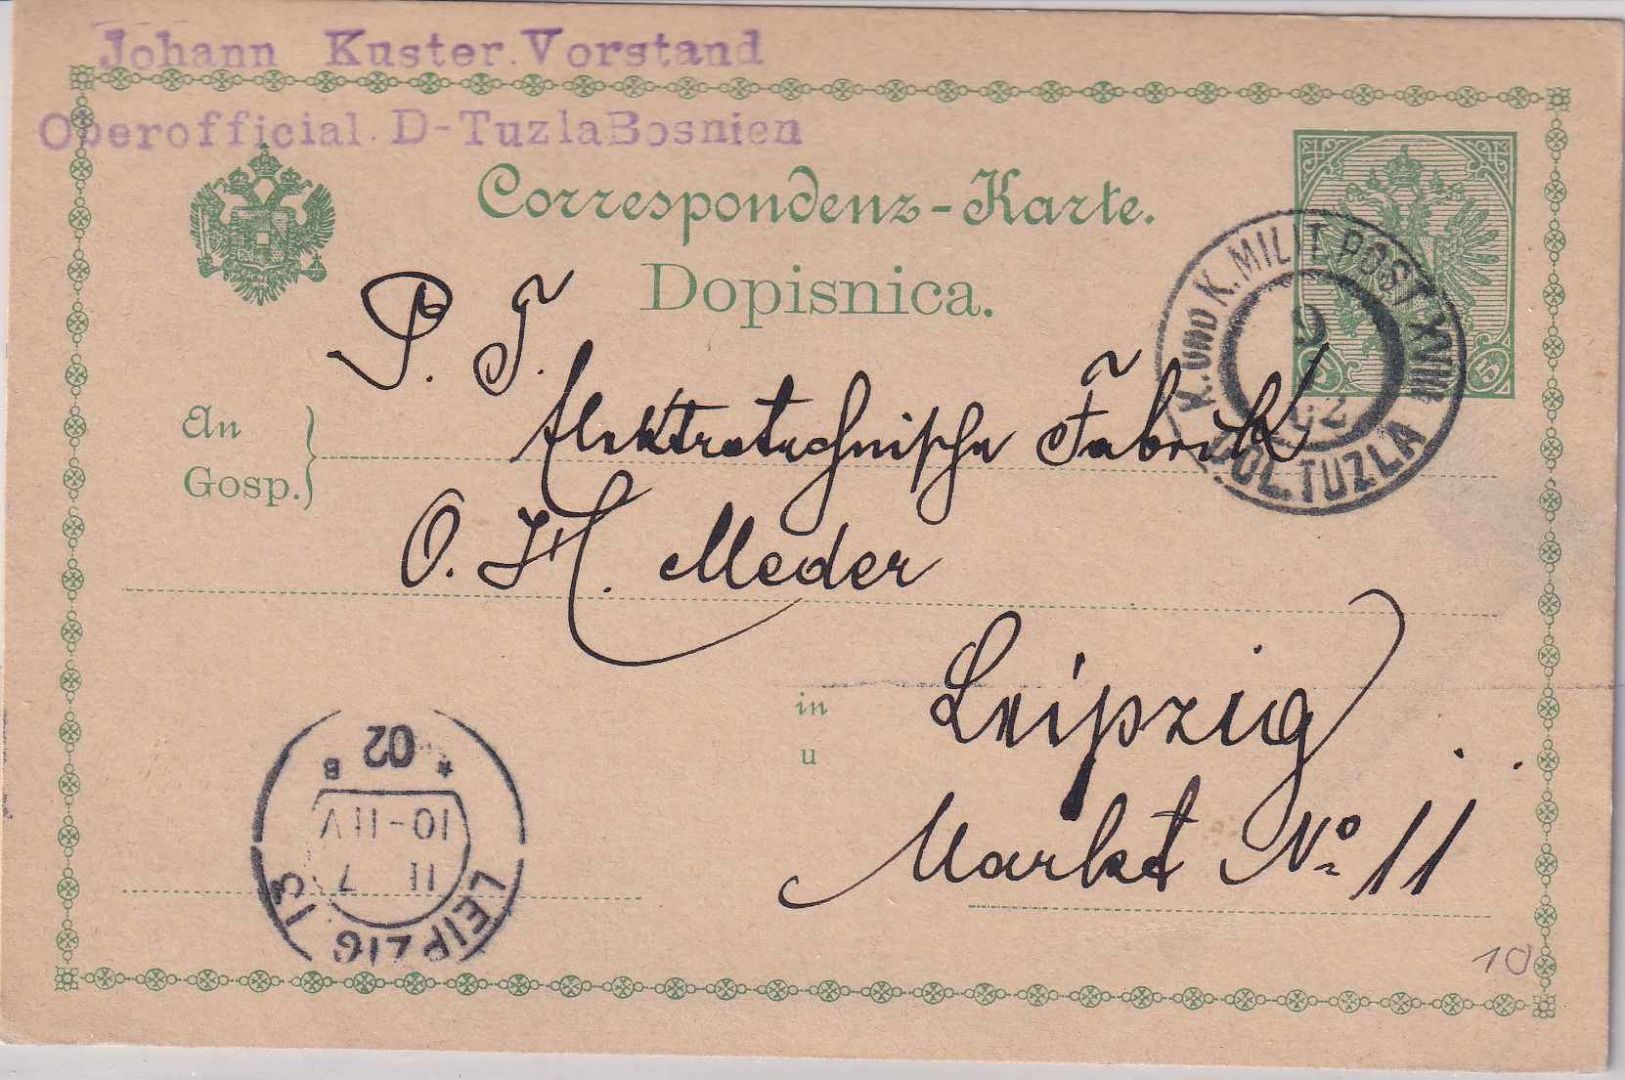 Johann Kuster. Vorstand
Oberofficial. D-Tuzla Bosnien
Correspondenz-Karte.
Dopisnica.
K. UND K. MILIT. POST XVIII
DOL. TUZLA
5
P. T.
An
Gosp.
Elektrotechnische Fabrik
O. H. Meder
in
u
Leipzig
Markt No 11
LEIPZIG 13
11 7
10-11V
* 02 B
10